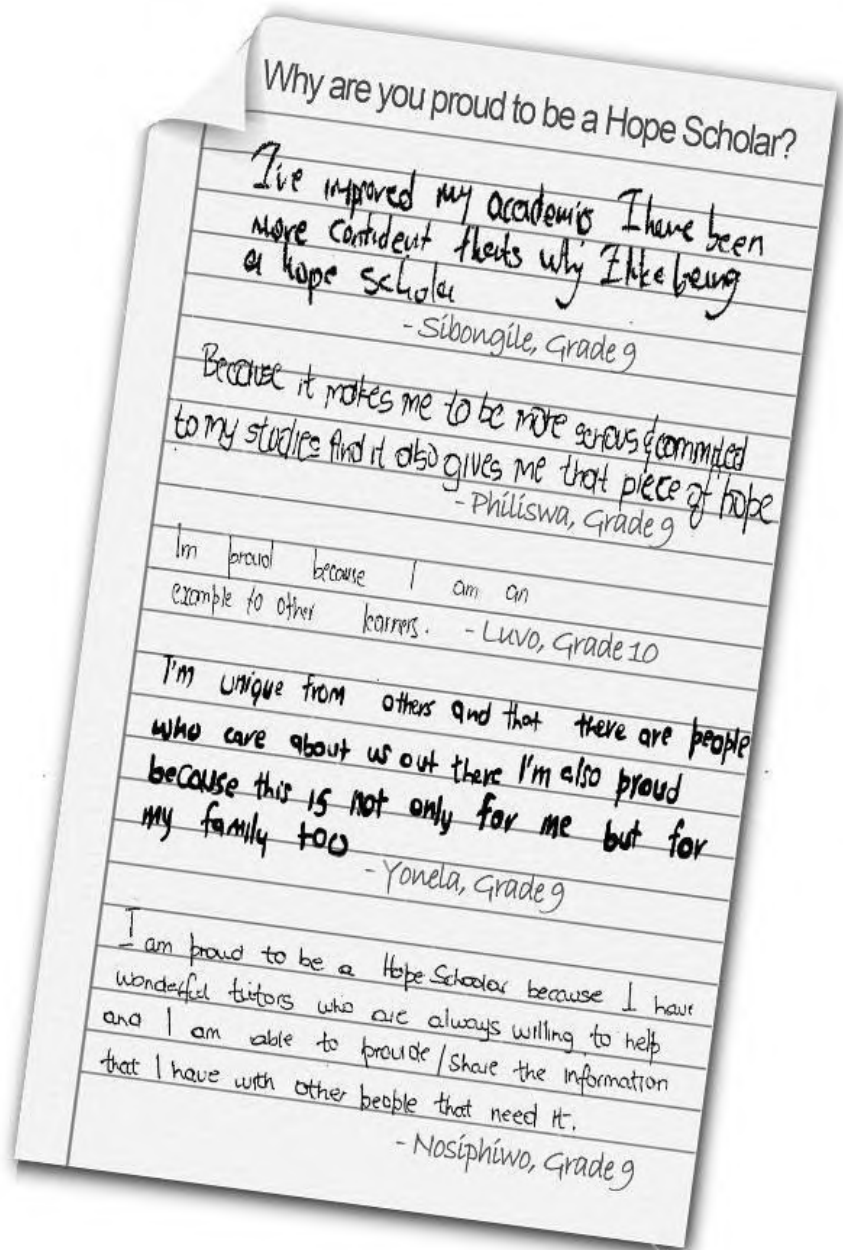 Why are you proud to be a Hope Scholar?
I've improved my academis I have been
more confident thats why I like being
a hope scholar
- Sibongile, Grade 9
Because it makes me to be more serious & commited
to my studies And it also gives me that piece of hope
- Philiswa, Grade 9
Im proud because I am an
example to other learners. - Luvo, Grade 10
I'm unique from others and that there are people
who care about us out there I'm also proud
because this is not only for me but for
my family too
- Yonela, Grade 9
I am proud to be a Hope Schoolar because I have
wonderful tutors who are always willing to help
and I am able to provide / Share the information
that I have with other people that need it.
- Nosiphiwo, Grade 9